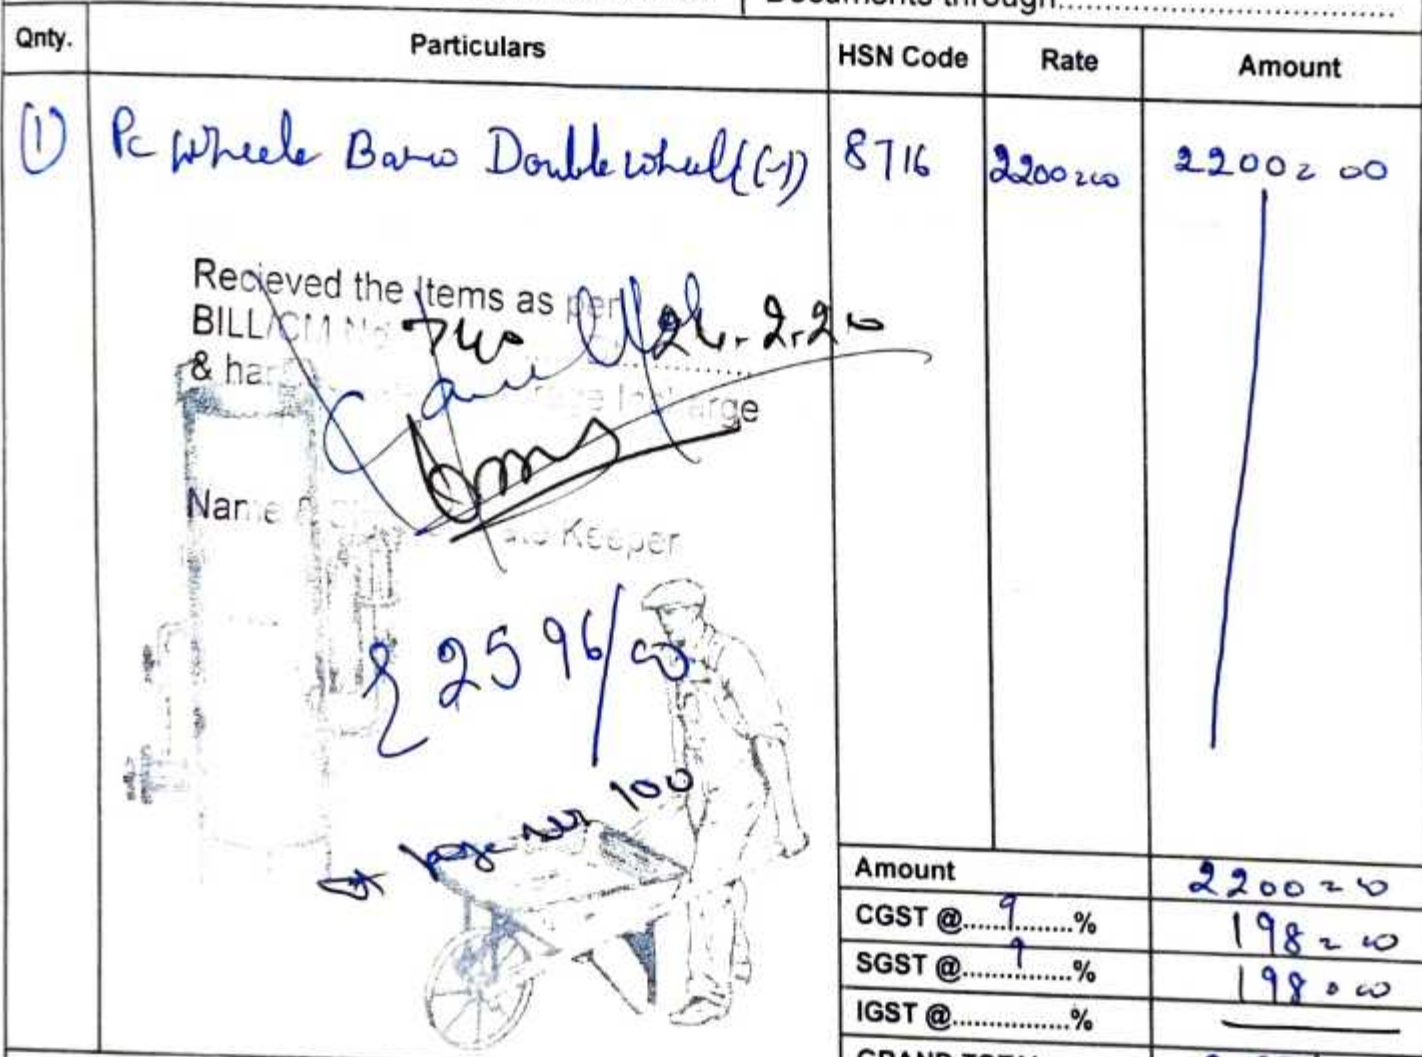 Documents through
Qnty. Particulars HSN Code Rate Amount
(1) Pc Wheele Barro Double wheell (-1) 8716 2200=00 2200=00
Recieved the Items as per
BILL/CM No 740 26.2.20
& han
Incharge
Name
Keeper
2596/00
page no 100
Amount 2200=00
CGST @ 9 % 198=00
SGST @ 9 % 198=00
IGST @ %
GRAND TOTAL